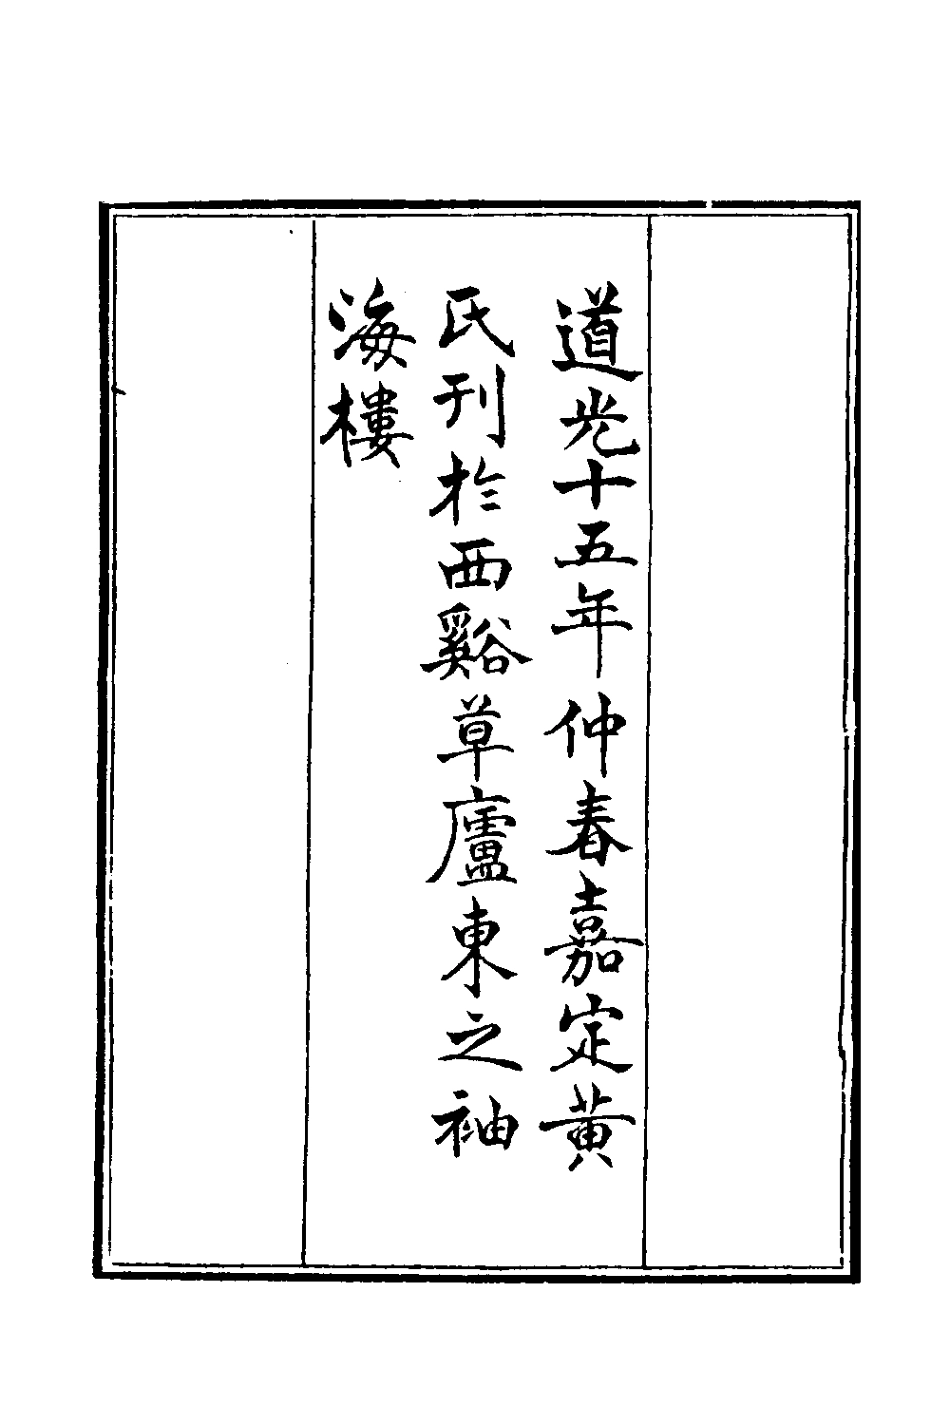 道光十五年仲春嘉定黄
氏刊於西谿草廬東之袖
海樓